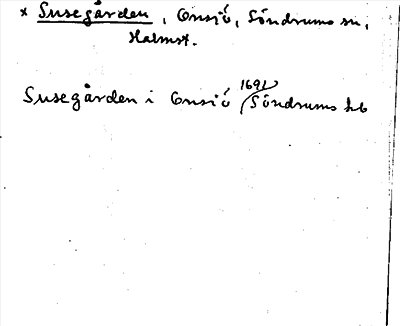 × Susegården, Onsjö, Söndrums sn,
Halmst.
1691
Susegården i Onsjö Söndrums kb